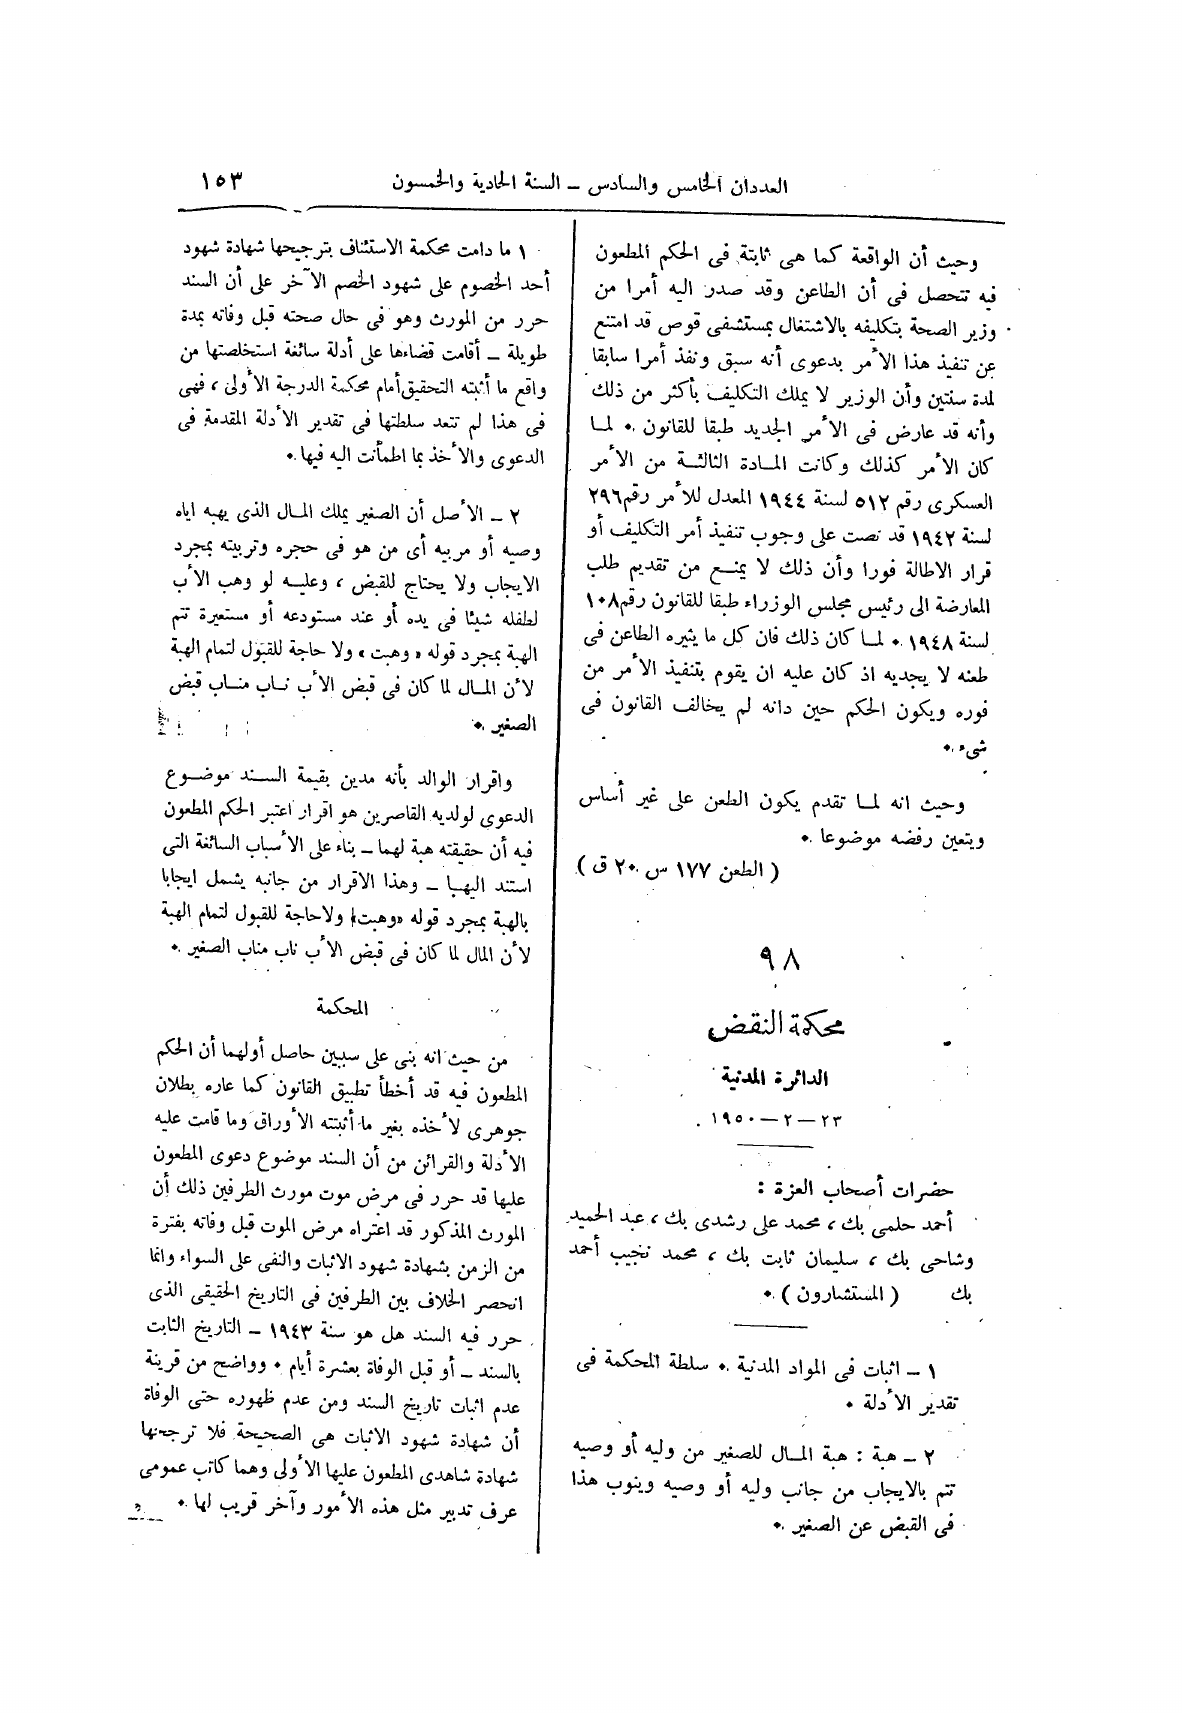 العددان الخامس والسادس – السنة الحادية والخمسون
١٥٣
وحيث أن الواقعة كما هى ثابتة فى الحكم المطعون
فيه تتحصل فى أن الطاعن وقد صدر اليه أمرا من
وزير الصحة بتكليفه بالاشتغال بمستشفى قوص قد امتنع
عن تنفيذ هذا الأمر بدعوى أنه سبق ونفذ أمرا سابقا
لمدة سنتين وأن الوزير لا يملك التكليف بأكثر من ذلك
وأنه قد عارض فى الأمر الجديد طبقا للقانون . لما
كان الأمر كذلك وكانت المادة الثالثة من الأمر
العسكرى رقم ٥١٢ لسنة ١٩٤٤ المعدل للأمر رقم ٢٩٦
لسنة ١٩٤٢ قد نصت على وجوب تنفيذ أمر التكليف أو
قرار الاطالة فورا وأن ذلك لا يمنع من تقديم طلب
المعارضة الى رئيس مجلس الوزراء طبقا للقانون رقم ١٠٨
لسنة ١٩٤٨ . لما كان ذلك فان كل ما يثيره الطاعن فى
طعنه لا يجديه اذ كان عليه ان يقوم بتنفيذ الأمر من
فوره ويكون الحكم حين دانه لم يخالف القانون فى
شىء .
وحيث انه لما تقدم يكون الطعن على غير أساس
ويتعين رفضه موضوعا .
( الطعن ١٧٧ س ٢٠ ق )
٩٨
محكمة النقض
الدائرة المدنية
٢٣ – ٢ – ١٩٥٠
حضرات أصحاب العزة :
أحمد حلمى بك ، محمد على رشدى بك ، عبد الحميد
وشاحى بك ، سليمان ثابت بك ، محمد نجيب أحمد
بك ( المستشارون ) .
١ – اثبات فى المواد المدنية . سلطة المحكمة فى
تقدير الأدلة .
٢ – هبة : هبة المال للصغير من وليه أو وصيه
تتم بالايجاب من جانب وليه أو وصيه وينوب هذا
فى القبض عن الصغير .
١ ما دامت محكمة الاستئناف بترجيحها شهادة شهود
أحد الخصوم على شهود الخصم الآخر على أن السند
حرر من المورث وهو فى حال صحته قبل وفاته بمدة
طويلة – أقامت قضاءها على أدلة سائغة استخلصتها من
واقع ما أثبته التحقيق أمام محكمة الدرجة الأولى ، فهى
فى هذا لم تتعد سلطتها فى تقدير الأدلة المقدمة فى
الدعوى والأخذ بما اطمأنت اليه فيها .
٢ – الأصل أن الصغير يملك المال الذى يهبه اياه
وصيه أو مربيه أى من هو فى حجره وتربيته بمجرد
الايجاب ولا يحتاج للقبض ، وعليه لو وهب الأب
لطفله شيئا فى يده أو عند مستودعه أو مستعيرة تتم
الهبة بمجرد قوله « وهبت » ولا حاجة للقبول لتمام الهبة
لأن المال لما كان فى قبض الأب ناب مناب قبض
الصغير .
واقرار الوالد بأنه مدين بقيمة السند موضوع
الدعوى لولديه القاصرين هو اقرار اعتبر الحكم المطعون
فيه أن حقيقته هبة لهما – بناء على الأسباب السائغة التى
استند اليها – وهذا الاقرار من جانبه يشمل ايجابا
بالهبة بمجرد قوله «وهبت» ولا حاجة للقبول لتمام الهبة
لأن المال لما كان فى قبض الأب ناب مناب الصغير .
المحكمة
من حيث انه بنى على سببين حاصل أولهما أن الحكم
المطعون فيه قد أخطأ تطبيق القانون كما عاره بطلان
جوهرى لأخذه بغير ما أثبتته الأوراق وما قامت عليه
الأدلة والقرائن من أن السند موضوع دعوى المطعون
عليها قد حرر فى مرض موت مورث الطرفين ذلك أن
المورث المذكور قد اعتراه مرض الموت قبل وفاته بفترة
من الزمن بشهادة شهود الاثبات والنفى على السواء وانما
انحصر الخلاف بين الطرفين فى التاريخ الحقيقى الذى
حرر فيه السند هل هو سنة ١٩٤٣ – التاريخ الثابت
بالسند – أو قبل الوفاة بعشرة أيام . وواضح من قرينة
عدم اثبات تاريخ السند ومن عدم ظهوره حتى الوفاة
أن شهادة شهود الاثبات هى الصحيحة فلا ترجحها
شهادة شاهدى المطعون عليها الأولى وهما كاتب عمومى
عرف تدبير مثل هذه الأمور وآخر قريب لها .